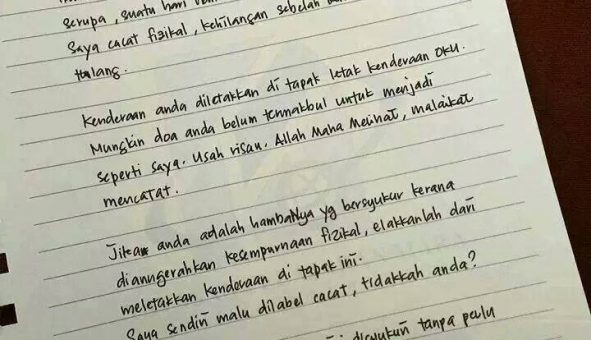 serupa, suatu hari
Saya cacat fizikal, kehilangan sebelah
tulang.
Kenderaan anda diletakkan di tapak letak kenderaan OKU.
Mungkin doa anda belum termakbul untuk menjadi
seperti saya. Usah risau. Allah Maha Melihat, malaikat
mencatat.
Jika anda adalah hambaNya yg bersyukur kerana
dianugerahkan kesempurnaan fizikal, elakkanlah dari
meletakkan kenderaan di tapak ini.
Saya sendiri malu dilabel cacat, tidakkah anda?
disyukuri tanpa perlu